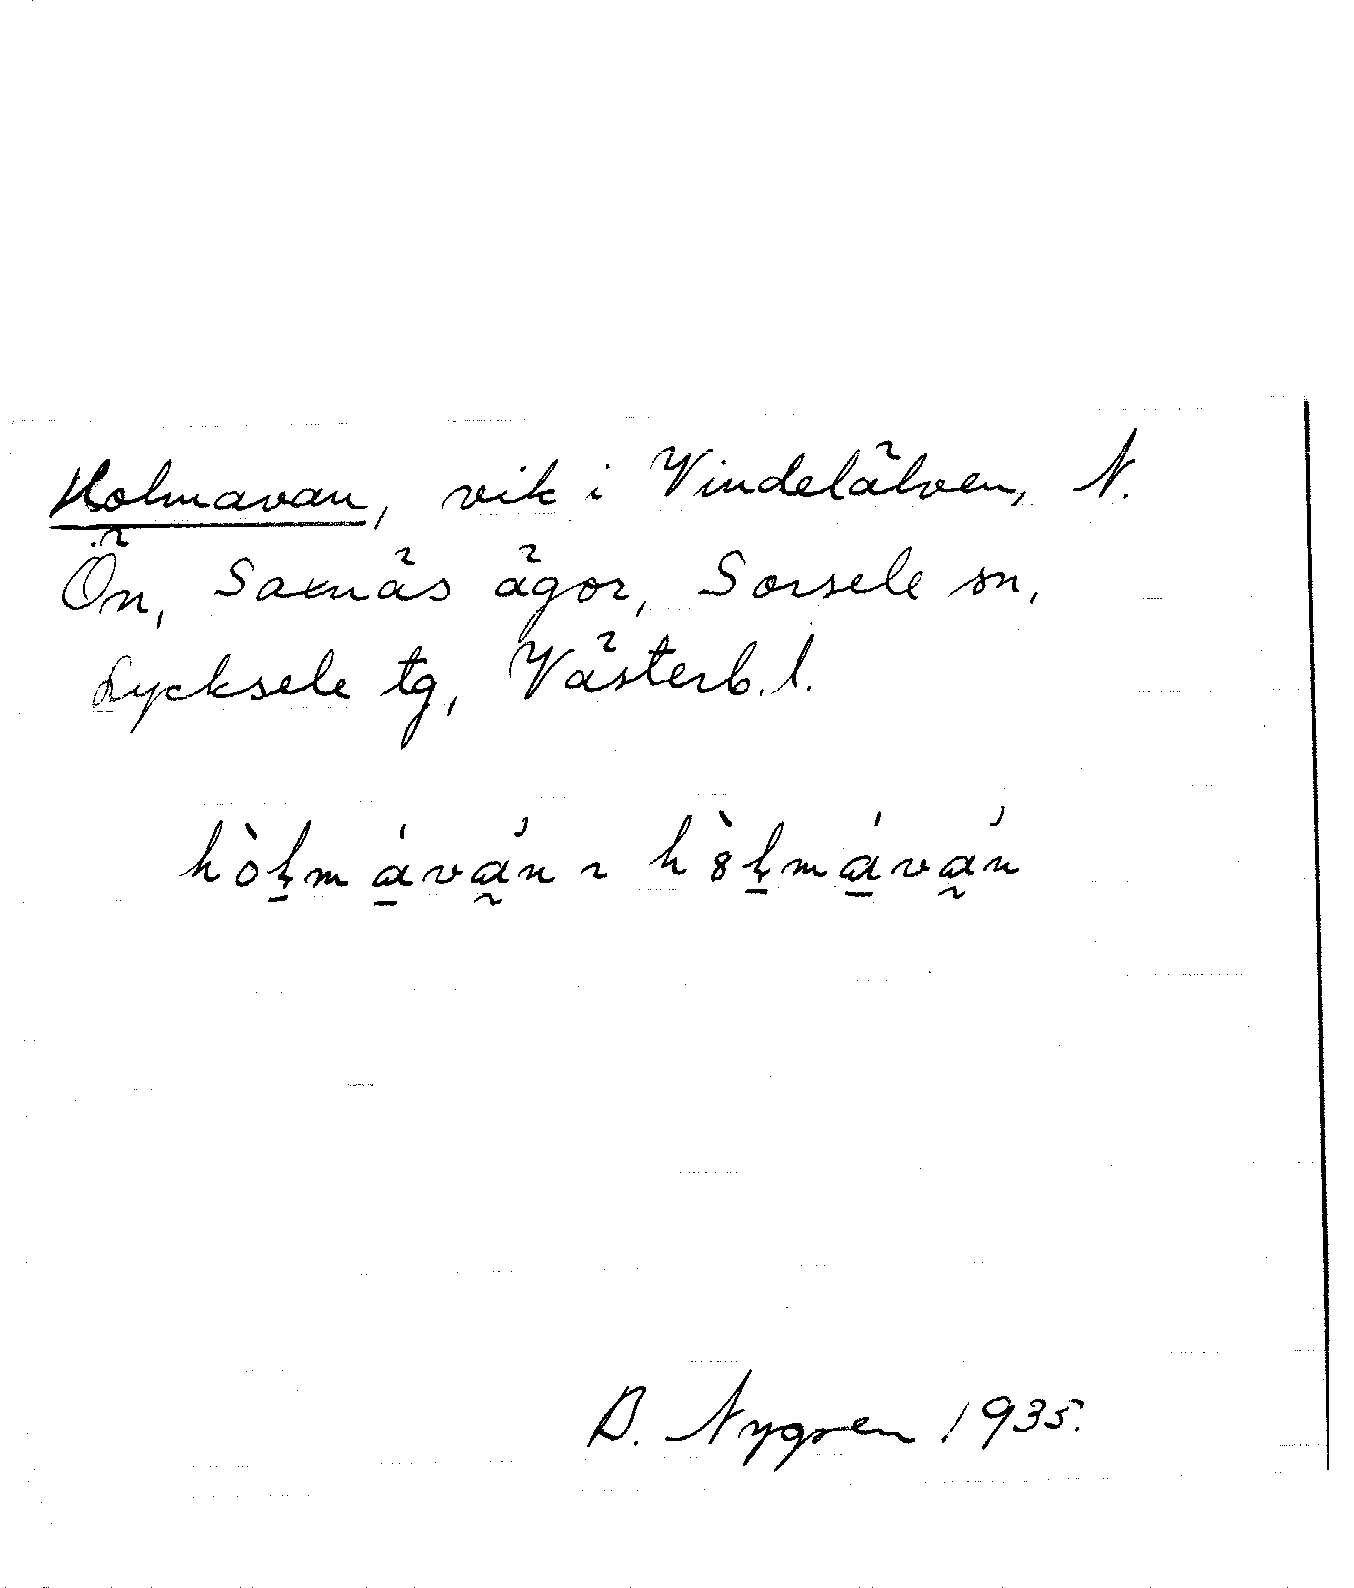 Holmavan, vik i Vindelälven, N.
Ön, Saxnäs ägor, Sorsele sn,
Lycksele tg, Västerb. l.
hòḷmáván ~ hȣ̀ḷmáván
B. Nygren 1935.